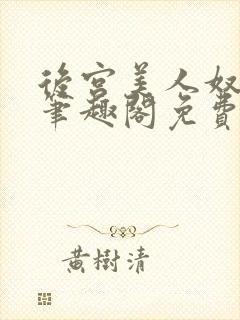 後宮美人奴
筆趣閣免費
黃樹清